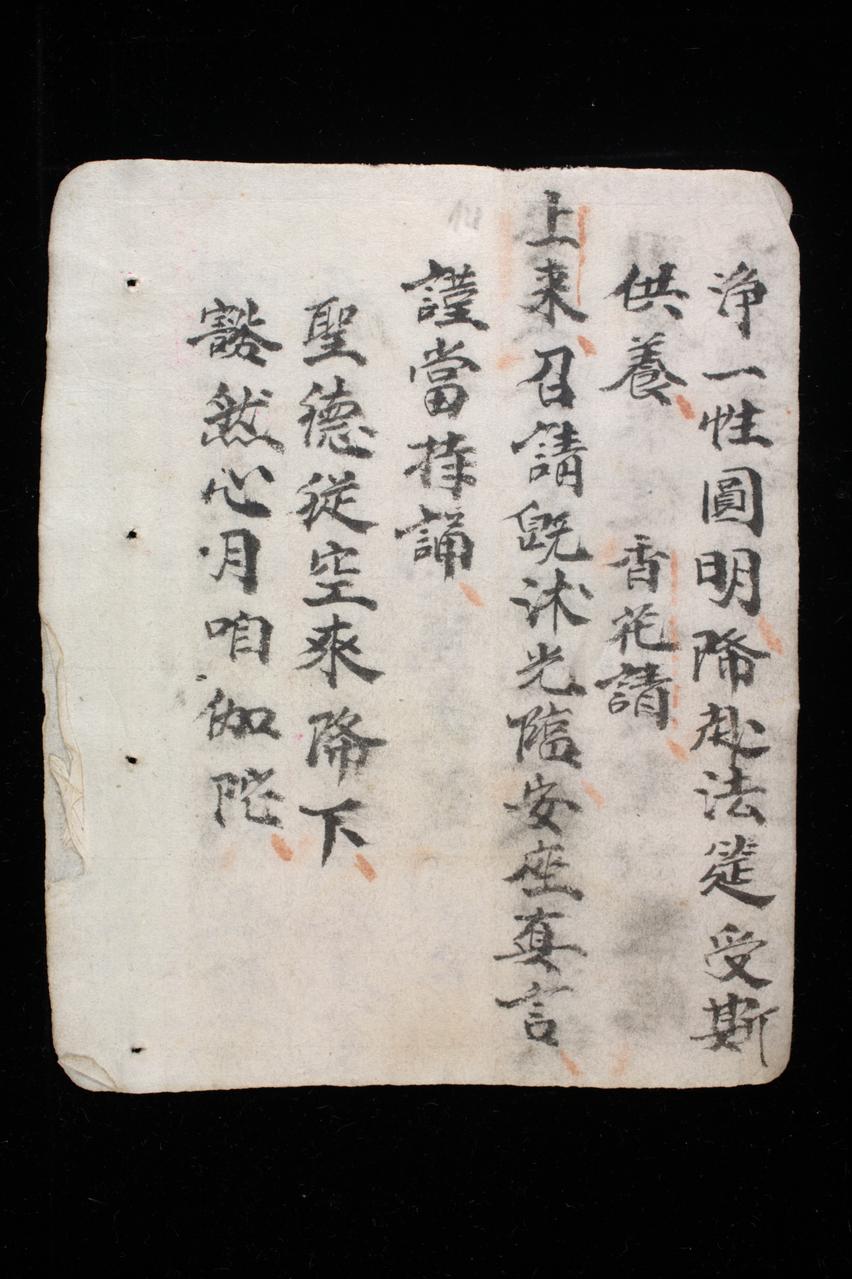 淨一性圓明降赴法筵受斯
供養　香花請
上来召請旣沐光臨安座真言
謹當持誦
聖德從空來降下
豁然心月咱伽陀